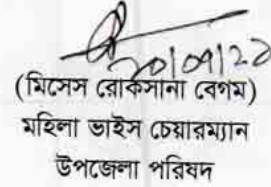 ২০/০৭/২০
(মিসেস রোকসানা বেগম)
মহিলা ভাইস চেয়ারম্যান
উপজেলা পরিষদ